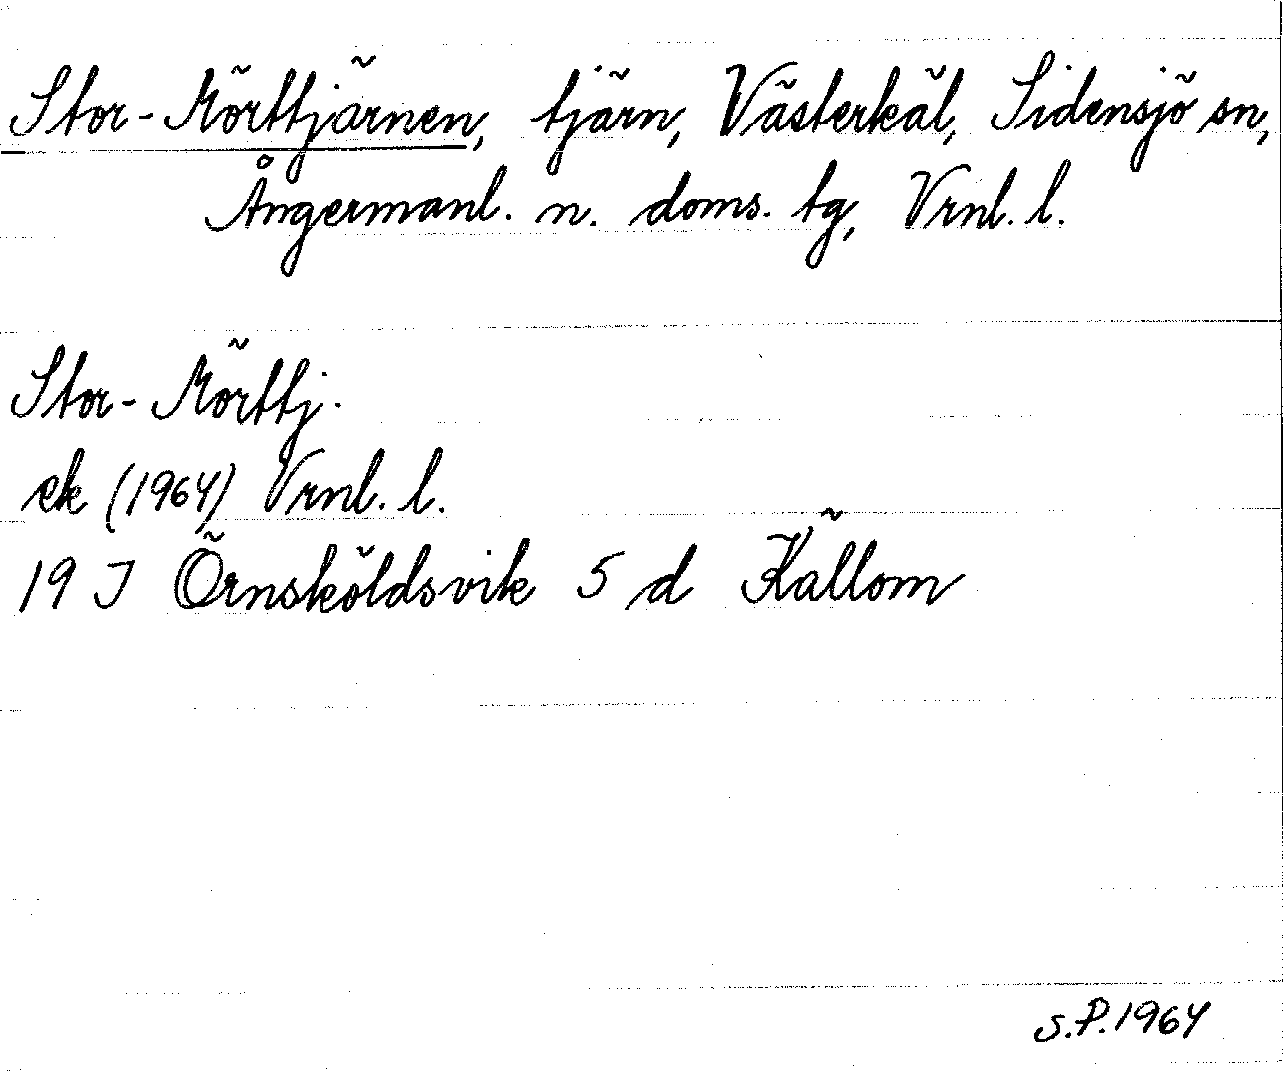 Stor-Mörttjärnen, tjärn, Västerkäl, Sidensjö sn,
Ångermanl. n. doms. tg, Vrnl. l.
Stor-Mörttj.
ek (1964) Vrnl. l.
19 J Örnsköldsvik 5 d Källom
S.P. 1964